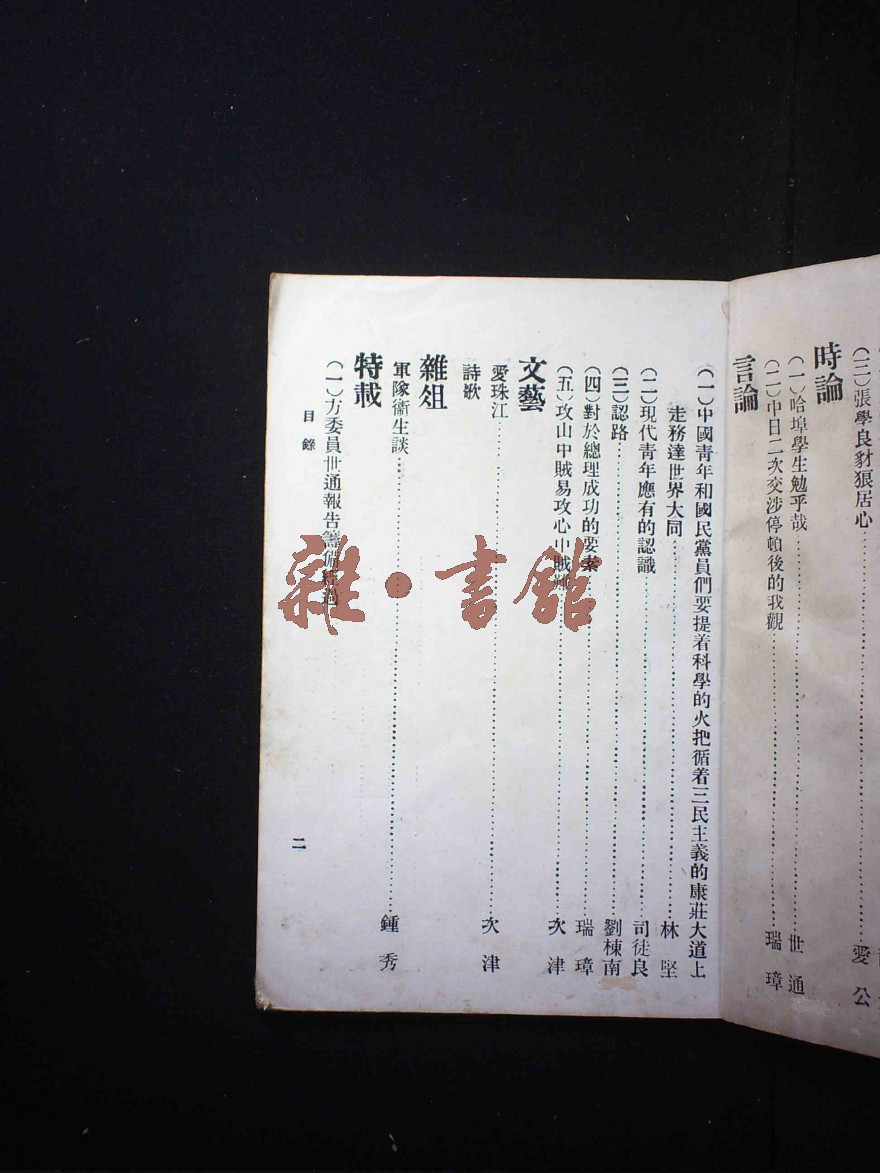 (三)張學良豺狠居心 愛公
時論
(一)哈埠學生勉乎哉 世通
(二)中日二次交涉停頓後的我觀 瑞璋
言論
(一)中國青年和國民黨員們要提着科學的火把循着三民主義的康莊大道上
走務達世界大同 林堅
(二)現代青年應有的認識 司徒良
(三)認路 劉棟南
(四)對於總理成功的要素 瑞璋
(五)攻山中賊易攻心中賊難 次津
文藝
愛珠江 次津
詩歌
雜俎
軍隊衞生談 鍾秀
特載
(一)方委員世通報告籌備經過
目錄
二
雜·書館